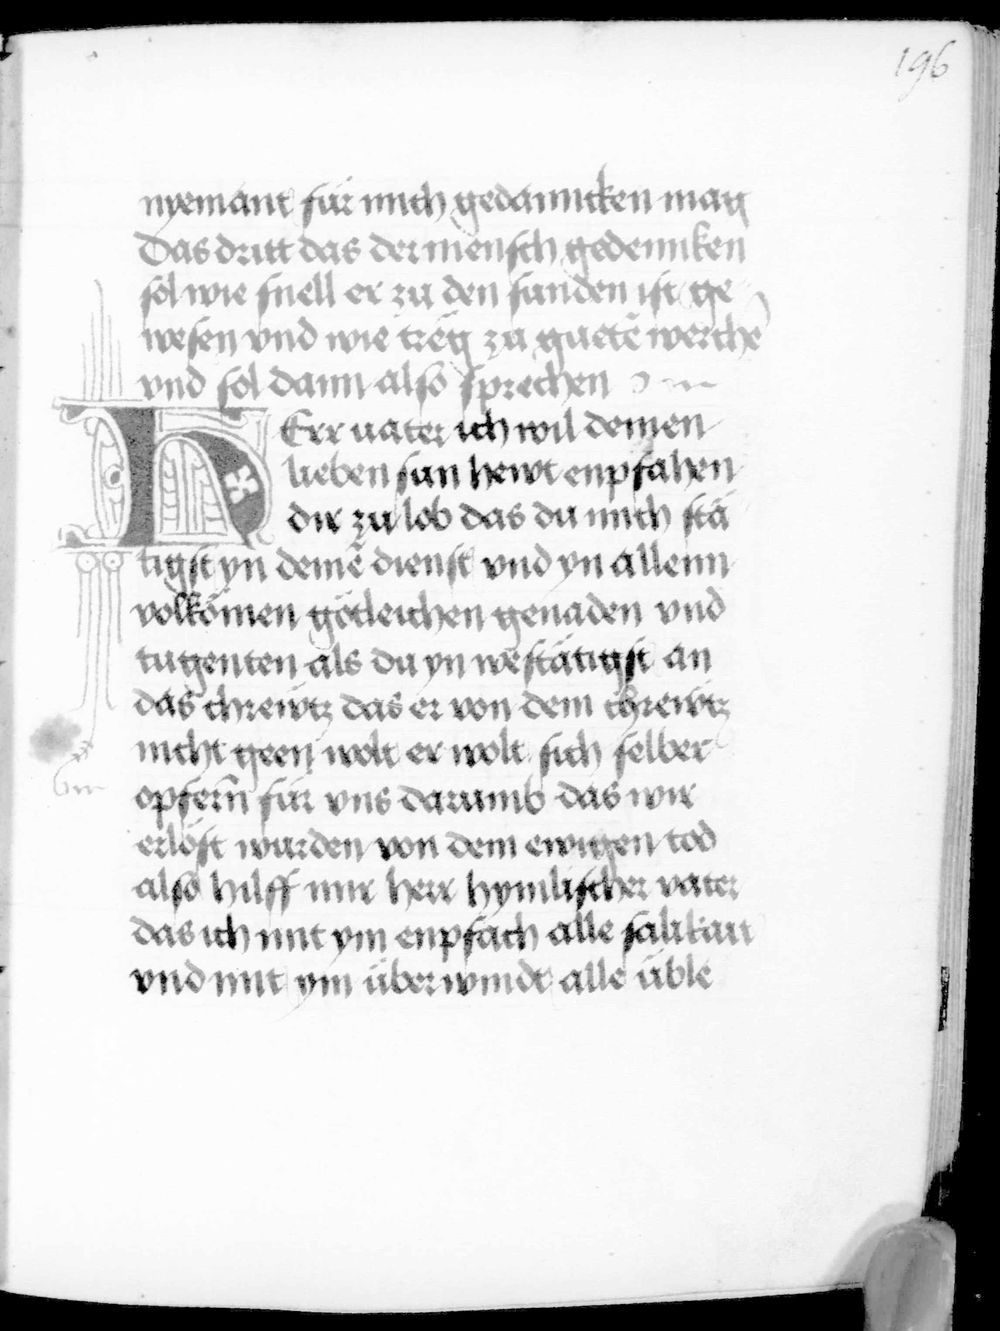 196
nyemant für mich gedanncken mag
Das dritt das der mensch gedenncken
sol wie snell er zu den sunden ist ge
wesen vnd wie träg zu guetē werchē
vnd sol dann also sprechen
HErr uater ich wil deinen
lieben sun hewt enpfahen
dir zu lob das du mich stä
tigst yn deinē dienst vnd yn allenn
volkömen götleichen genaden vnd
tugenten als du yn westätigst an
das chrewtz das er von dem chrewtz
nicht geen wolt er wolt sich selber
opfern̄ für vns darumb das wir
erlöst wurden von dem ewigen tod
also hilff mir herr hymlischer vater
das ich mit ym enpfach alle sälikait
vnd mit ym überwindt alle üble